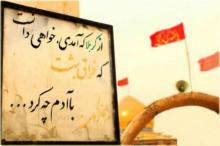 از کربلا که آمدی، خواهی دانست
که فراق بهشت
با آدم چه کرد...